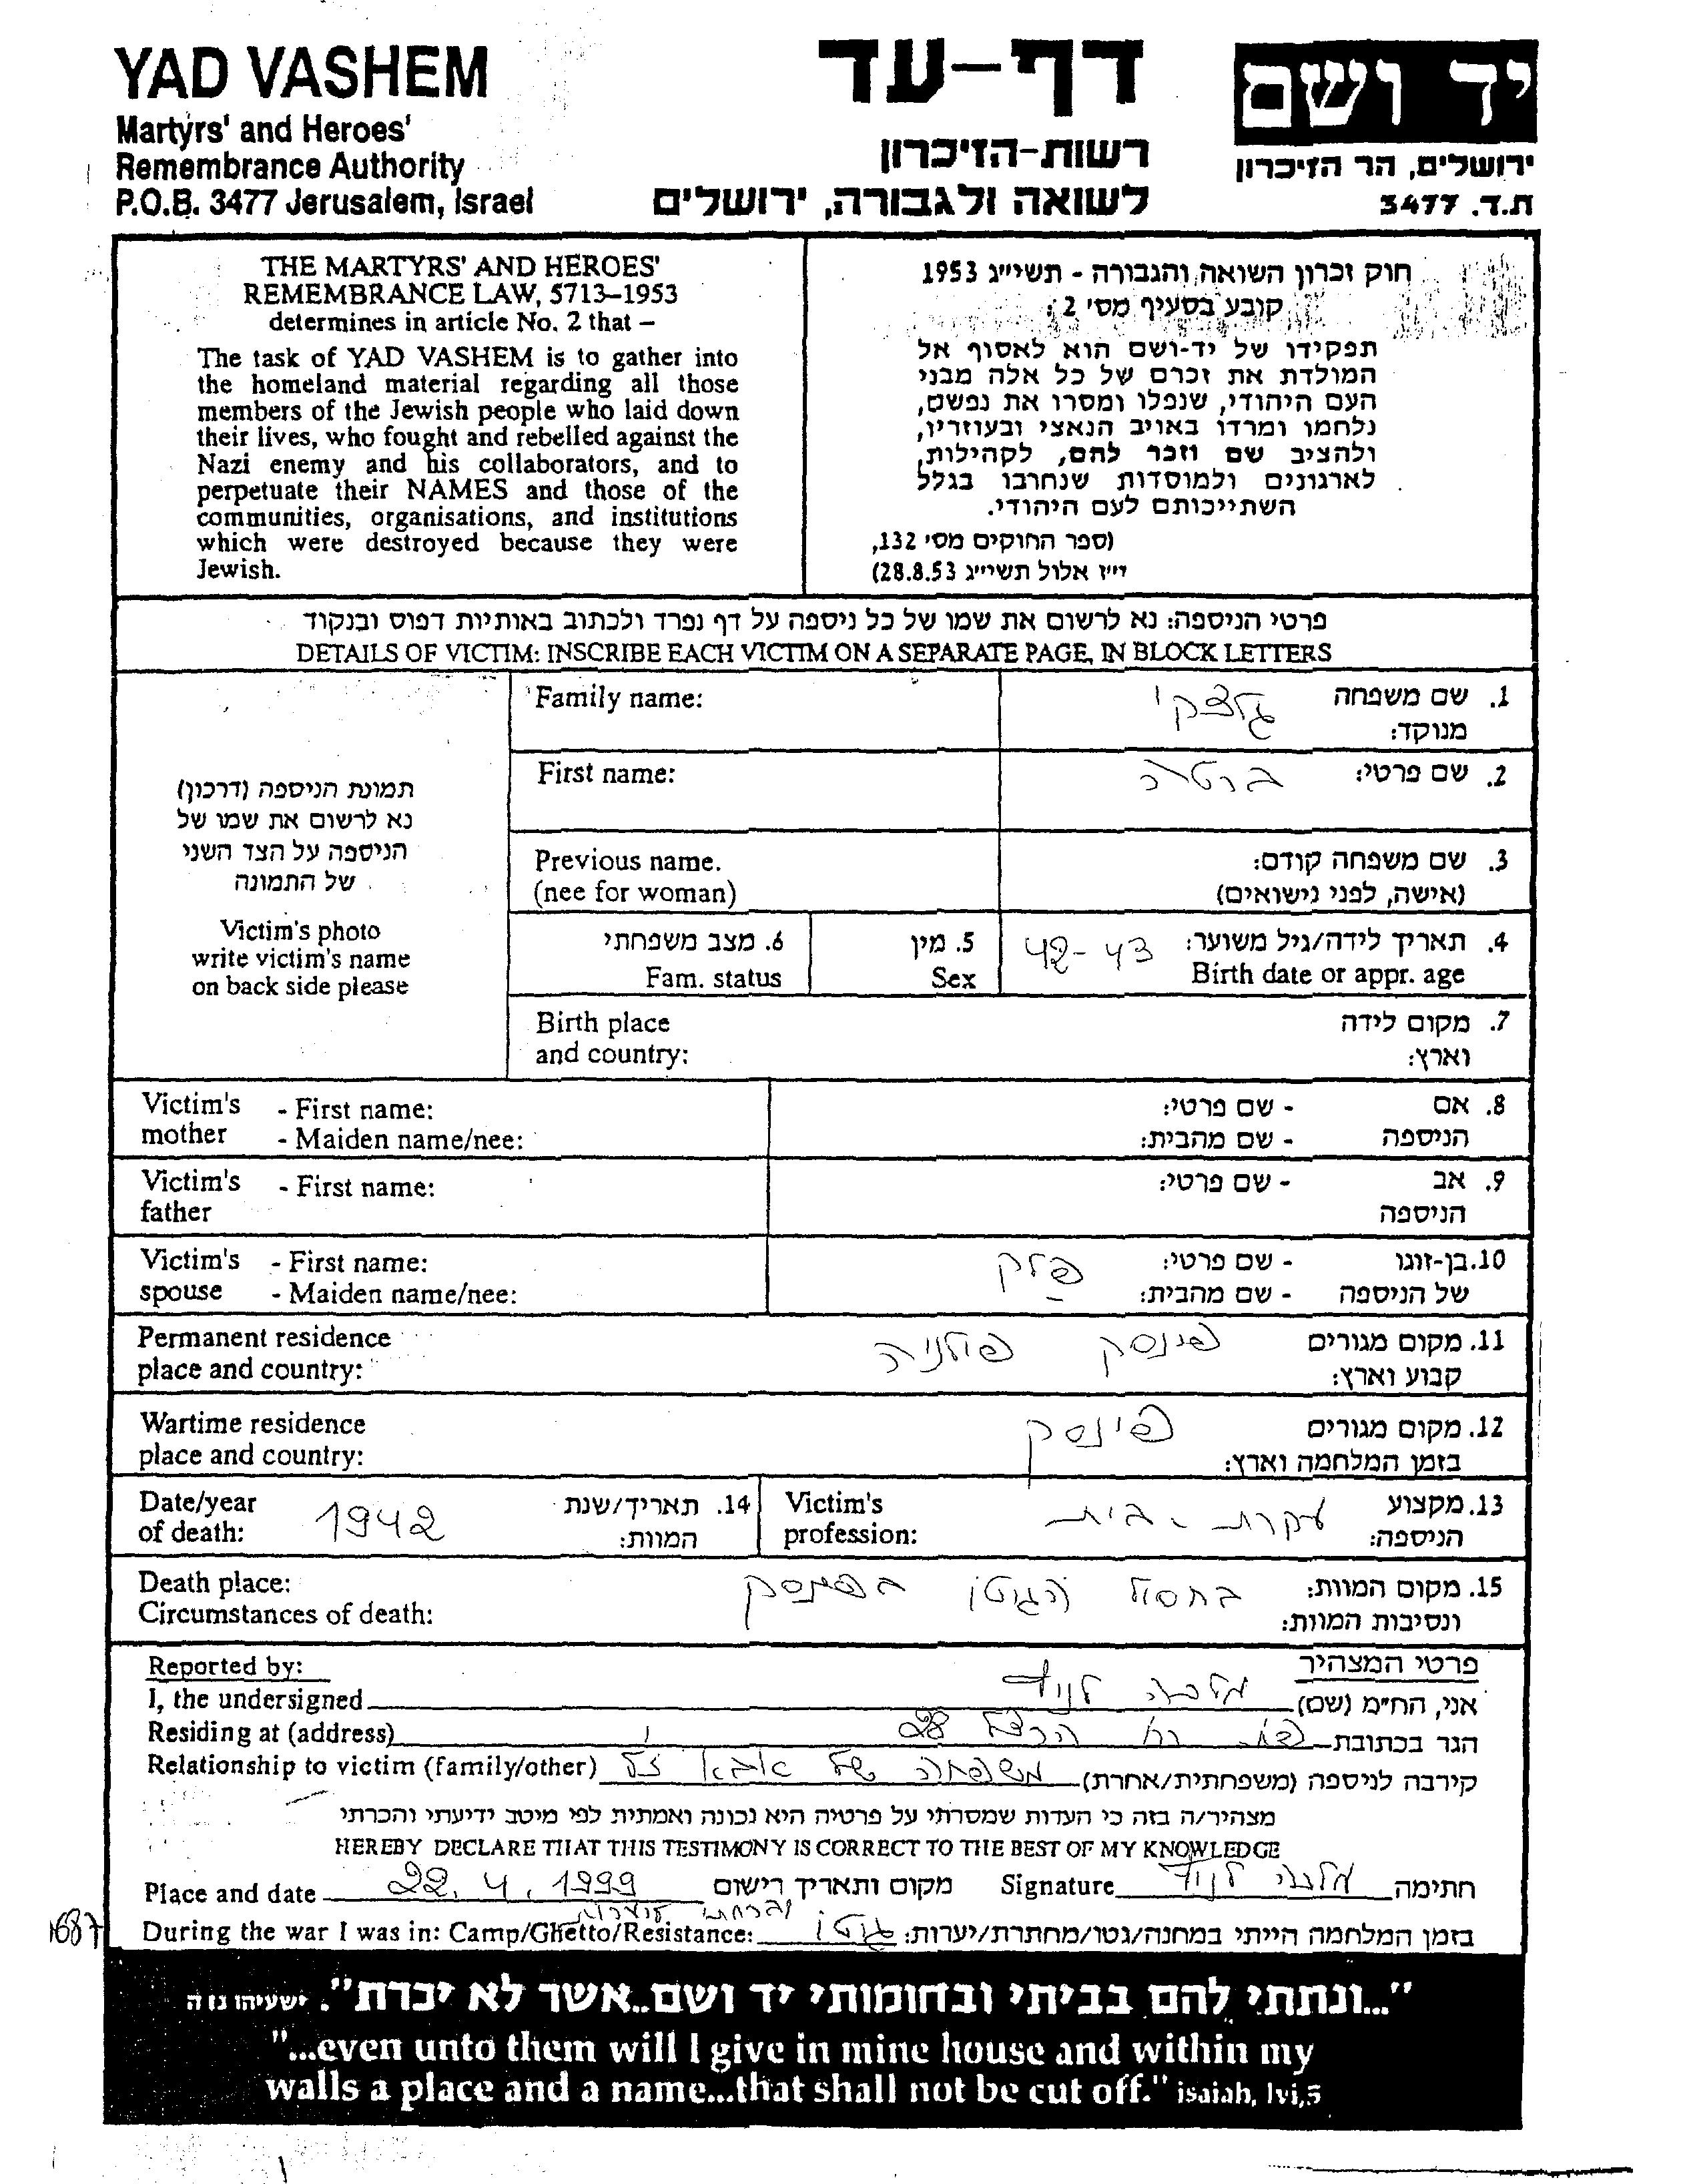 YAD VASHEM
Martyrs' and Heroes'
Remembrance Authority
P.O.B. 3477 Jerusalem, Israel
דף-עד
רשות-הזיכרון
לשואה ולגבורה, ירושלים
יד ושם
ירושלים, הר הזיכרון
ת.ד. 3477
THE MARTYRS' AND HEROES'
REMEMBRANCE LAW, 5713–1953
determines in article No. 2 that –
The task of YAD VASHEM is to gather into
the homeland material regarding all those
members of the Jewish people who laid down
their lives, who fought and rebelled against the
Nazi enemy and his collaborators, and to
perpetuate their NAMES and those of the
communities, organisations, and institutions
which were destroyed because they were
Jewish.
חוק זכרון השואה והגבורה - תשי״ג 1953
קובע בסעיף מס׳ 2 :
תפקידו של יד-ושם הוא לאסוף אל
המולדת את זכרם של כל אלה מבני
העם היהודי, שנפלו ומסרו את נפשם,
נלחמו ומרדו באויב הנאצי ובעוזריו,
ולהציב שם וזכר להם, לקהילות,
לארגונים ולמוסדות שנחרבו בגלל
השתייכותם לעם היהודי.
(ספר החוקים מס׳ 132,
י״ז אלול תשי״ג 28.8.53)
פרטי הניספה: נא לרשום את שמו של כל ניספה על דף נפרד ולכתוב באותיות דפוס ובנקוד
DETAILS OF VICTIM: INSCRIBE EACH VICTIM ON A SEPARATE PAGE, IN BLOCK LETTERS
תמונת הניספה (דרכון)
נא לרשום את שמו של
הניספה על הצד השני
של התמונה
Victim's photo
write victim's name
on back side please
Family name:
1. שם משפחה
מנוקד:
First name:
2. שם פרטי: ברטה
Previous name.
(nee for woman)
3. שם משפחה קודם:
(אישה, לפני נישואים)
4. תאריך לידה/גיל משוער: 42-43
Birth date or appr. age
5. מין
Sex
6. מצב משפחתי
Fam. status
Birth place
and country:
7. מקום לידה
וארץ:
Victim's - First name:
mother - Maiden name/nee:
8. אם - שם פרטי:
הניספה - שם מהבית:
Victim's - First name:
father
9. אב - שם פרטי:
הניספה
Victim's - First name:
spouse - Maiden name/nee:
10. בן-זוגו - שם פרטי:
של הניספה - שם מהבית:
Permanent residence
place and country:
11. מקום מגורים פינסק פולניה
קבוע וארץ:
Wartime residence
place and country:
12. מקום מגורים פינסק
בזמן המלחמה וארץ:
Date/year
of death: 1942
14. תאריך/שנת
המוות:
Victim's
profession:
13. מקצוע עקרת - בית
הניספה:
Death place:
Circumstances of death:
15. מקום המוות: בחסול הגטו בפינסק
ונסיבות המוות:
Reported by:
פרטי המצהיר
I, the undersigned
אני, הח״מ (שם) מלכה
Residing at (address)
הגר בכתובת 28
Relationship to victim (family/other)
קירבה לניספה (משפחתית/אחרת) משפחה של אבא
מצהיר/ה בזה כי העדות שמסרתי על פרטיה היא נכונה ואמתית לפי מיטב ידיעתי והכרתי
HEREBY DECLARE THAT THIS TESTIMONY IS CORRECT TO THE BEST OF MY KNOWLEDGE
Place and date 22.4.1999 מקום ותאריך רישום
Signature מלכה חתימה
1687
During the war I was in: Camp/Ghetto/Resistance:
בזמן המלחמה הייתי במחנה/גטו/מחתרת/יערות: גטו
"...ונתתי להם בביתי ובחומותי יד ושם..אשר לא יכרת". ישעיהו נו ה
"...even unto them will I give in mine house and within my
walls a place and a name...that shall not be cut off." isaiah, lvi,5